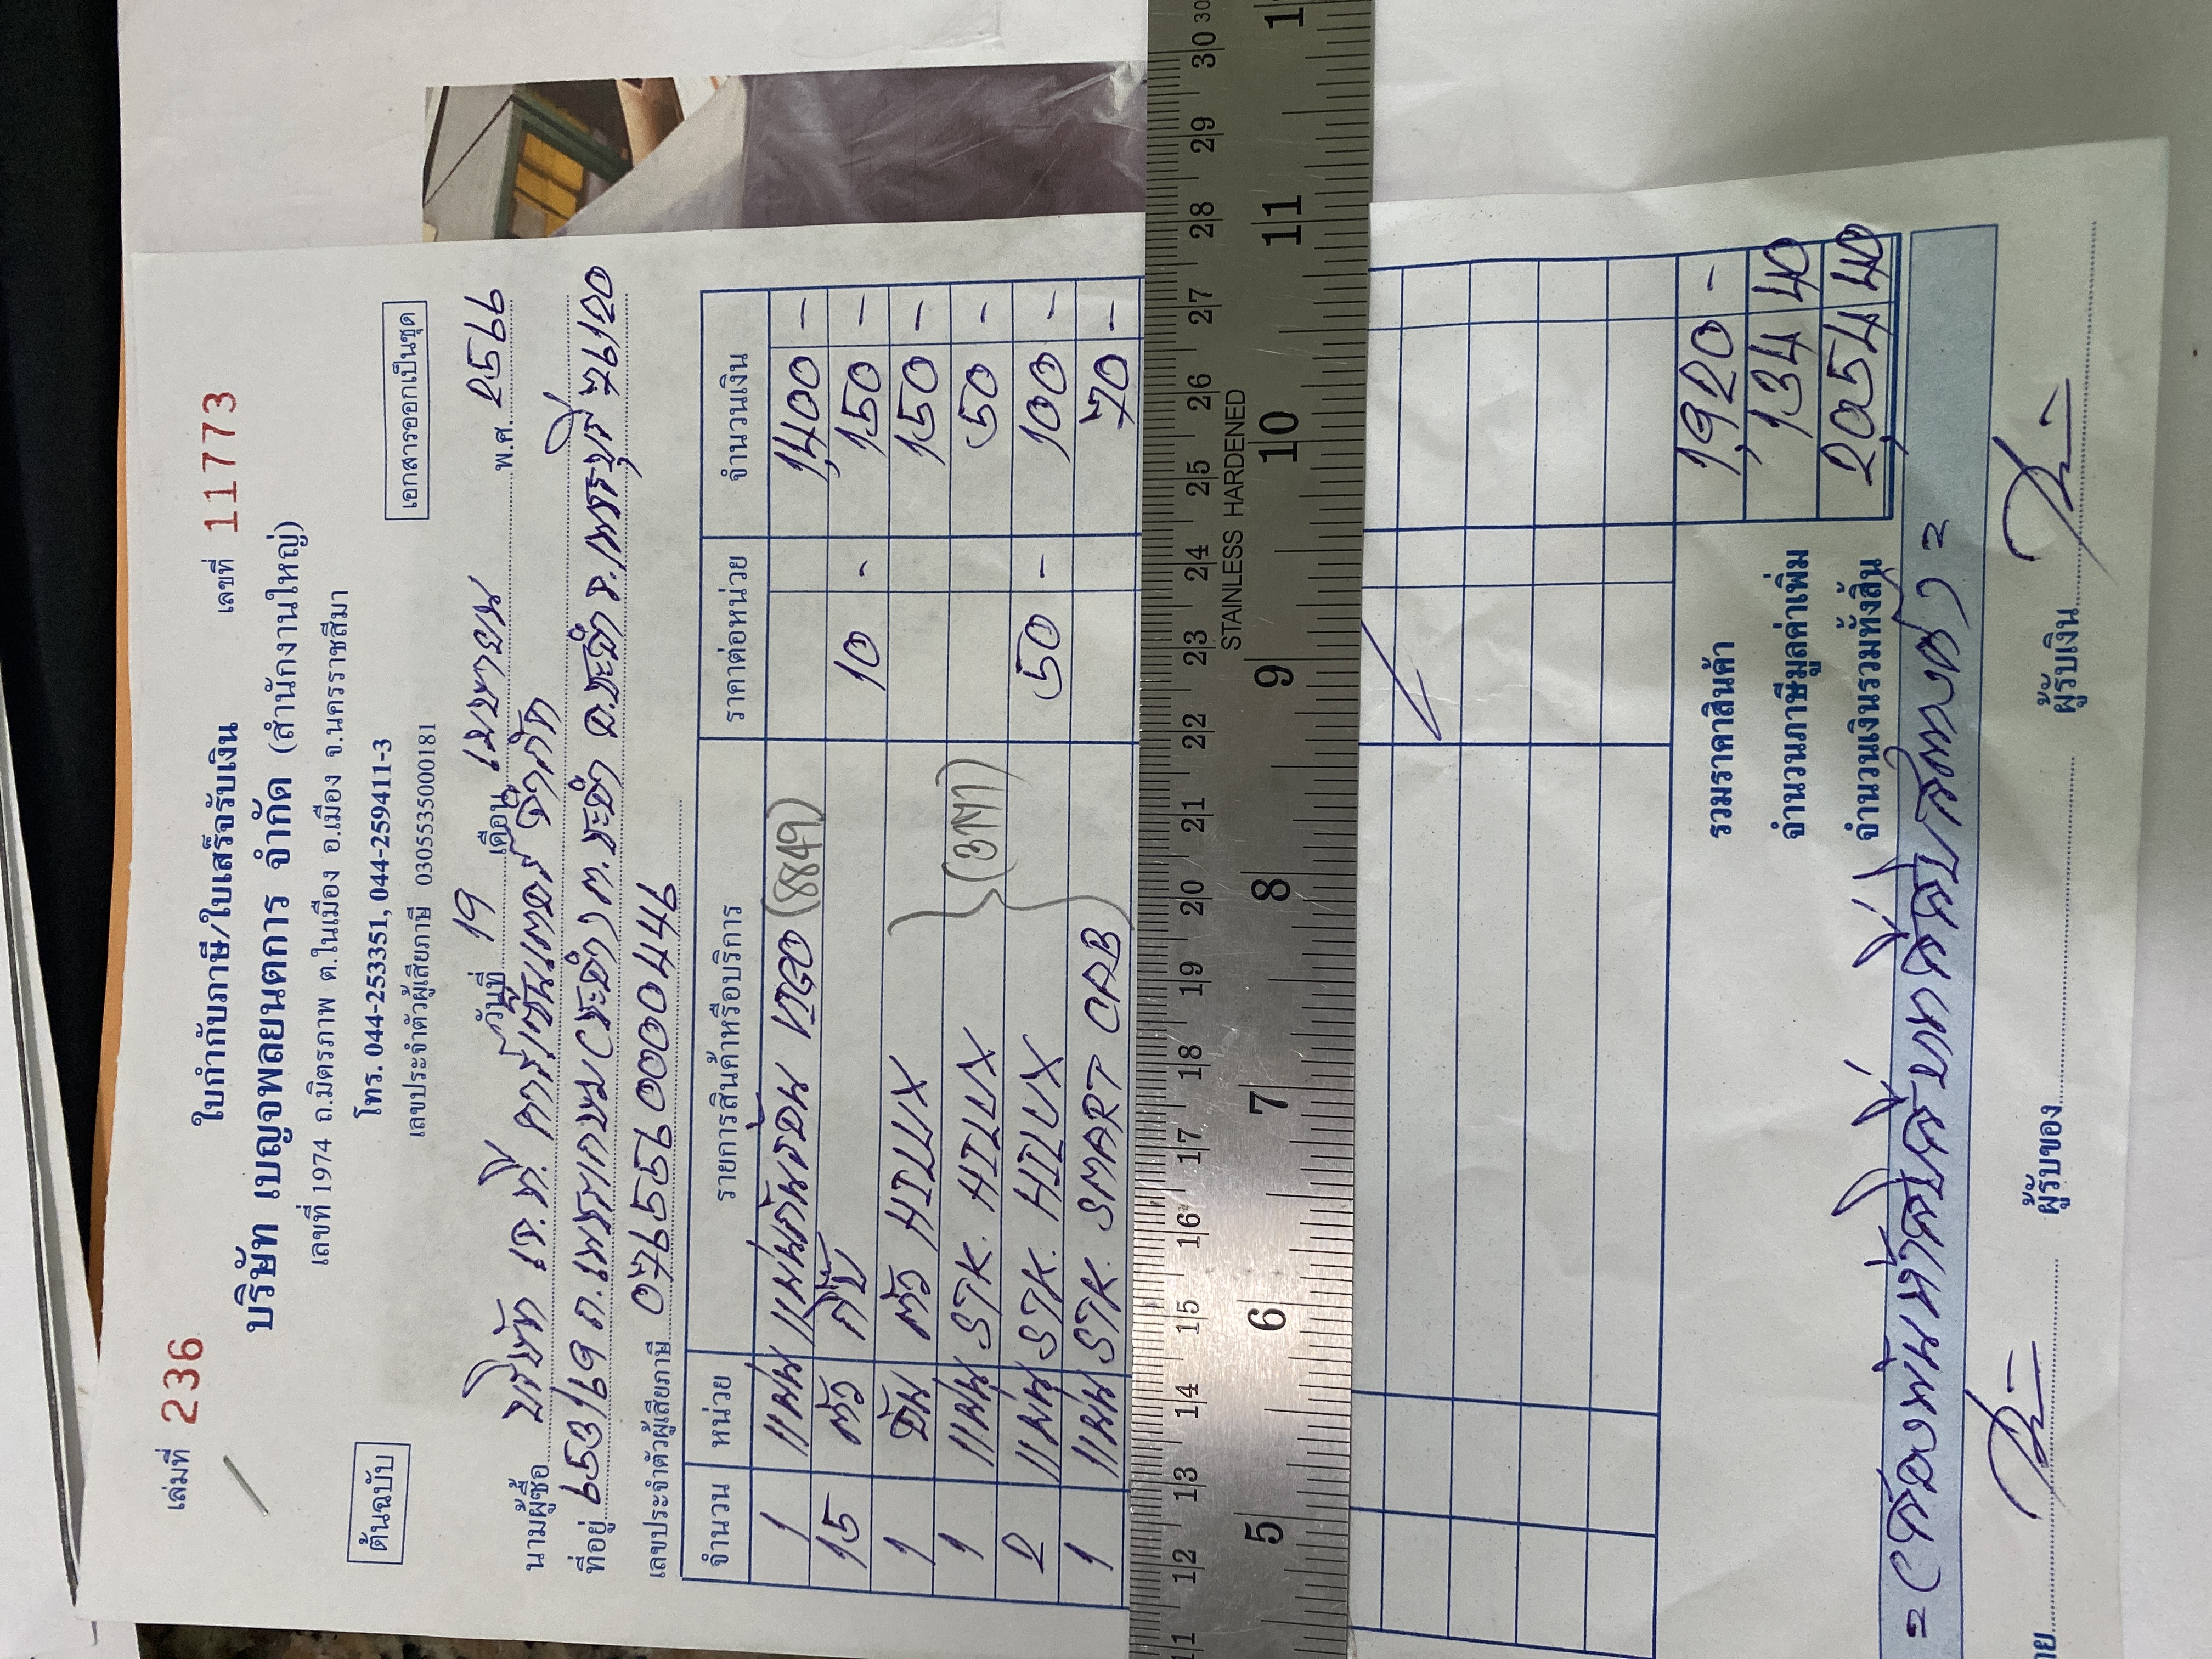 เล่มที่ 236
เลขที่ 11773
ใบกำกับภาษี/ใบเสร็จรับเงิน
บริษัท เบญจพลยนตการ จำกัด (สำนักงานใหญ่)
เลขที่ 1974 ถ.มิตรภาพ ต.ในเมือง อ.เมือง จ.นครราชสีมา
โทร. 044-253351, 044-259411-3
ต้นฉบับ
เลขประจำตัวผู้เสียภาษี 0305535000181
เอกสารออกเป็นชุด
วันที่ 19 เดือน เมษายน พ.ศ. 2566
นามผู้ซื้อ บริษัท เจ.ดี. คาร์เซ็นเตอร์ จำกัด
ที่อยู่ 653/69 ถ.เพชรเกษม ต.ชะอำ อ.ชะอำ จ.เพชรบุรี 76120
เลขประจำตัวผู้เสียภาษี 0765560000446
จำนวน หน่วย รายการสินค้าหรือบริการ ราคาต่อหน่วย จำนวนเงิน
1 แผ่น แผ่นกันร้อน VIGO (8849) 1,400 -
15 ตัว กิ๊บ 10 - 150 -
1 อัน ตัว HILUX 150 -
1 แผ่น STK. HILUX (3M) 50 -
2 แผ่น STK. HILUX 50 - 100 -
1 แผ่น STK. SMART CAB 70 -
11 12 13 14 15 16 17 18 19 20 21 22 23 24 25 26 27 28 29 30
STAINLESS HARDENED
5 6 7 8 9 10 11
รวมราคาสินค้า 1,920 -
จำนวนภาษีมูลค่าเพิ่ม 134 40
จำนวนเงินรวมทั้งสิ้น 2,054 40
= (สองพันห้าสิบสี่บาทสี่สิบสตางค์) =
ผู้รับของ
ผู้รับเงิน